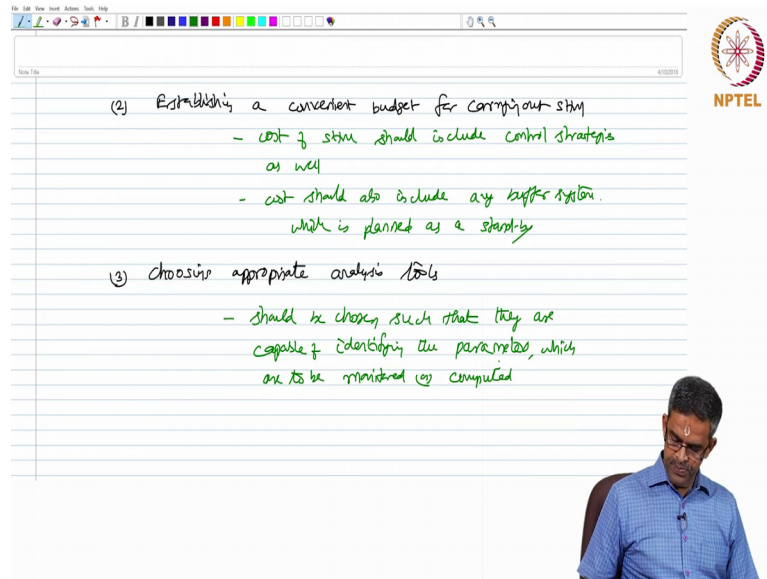 File Edit View Insert Actions Tools Help
Note Title
4/10/2018
NPTEL
(2) Establishing a convenient budget for carrying out SHM
- cost of SHM should include control strategies
as well
- cost should also include any buffer system.
which is planned as a stand-by
(3) choosing appropriate analysis tools
- should be chosen such that they are
capable of identifying the parameters, which
are to be monitored (or) computed